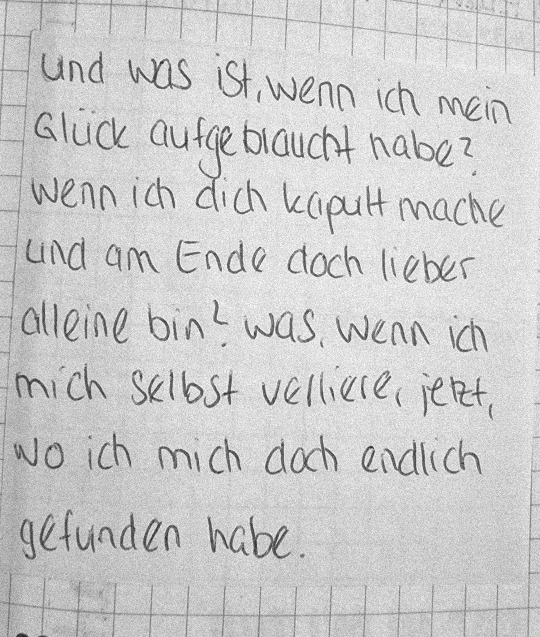 und was ist, wenn ich mein
Glück aufgebraucht habe?
wenn ich dich kaputt mache
und am Ende doch lieber
alleine bin? was, wenn ich
mich selbst verliere, jetzt,
wo ich mich doch endlich
gefunden habe.